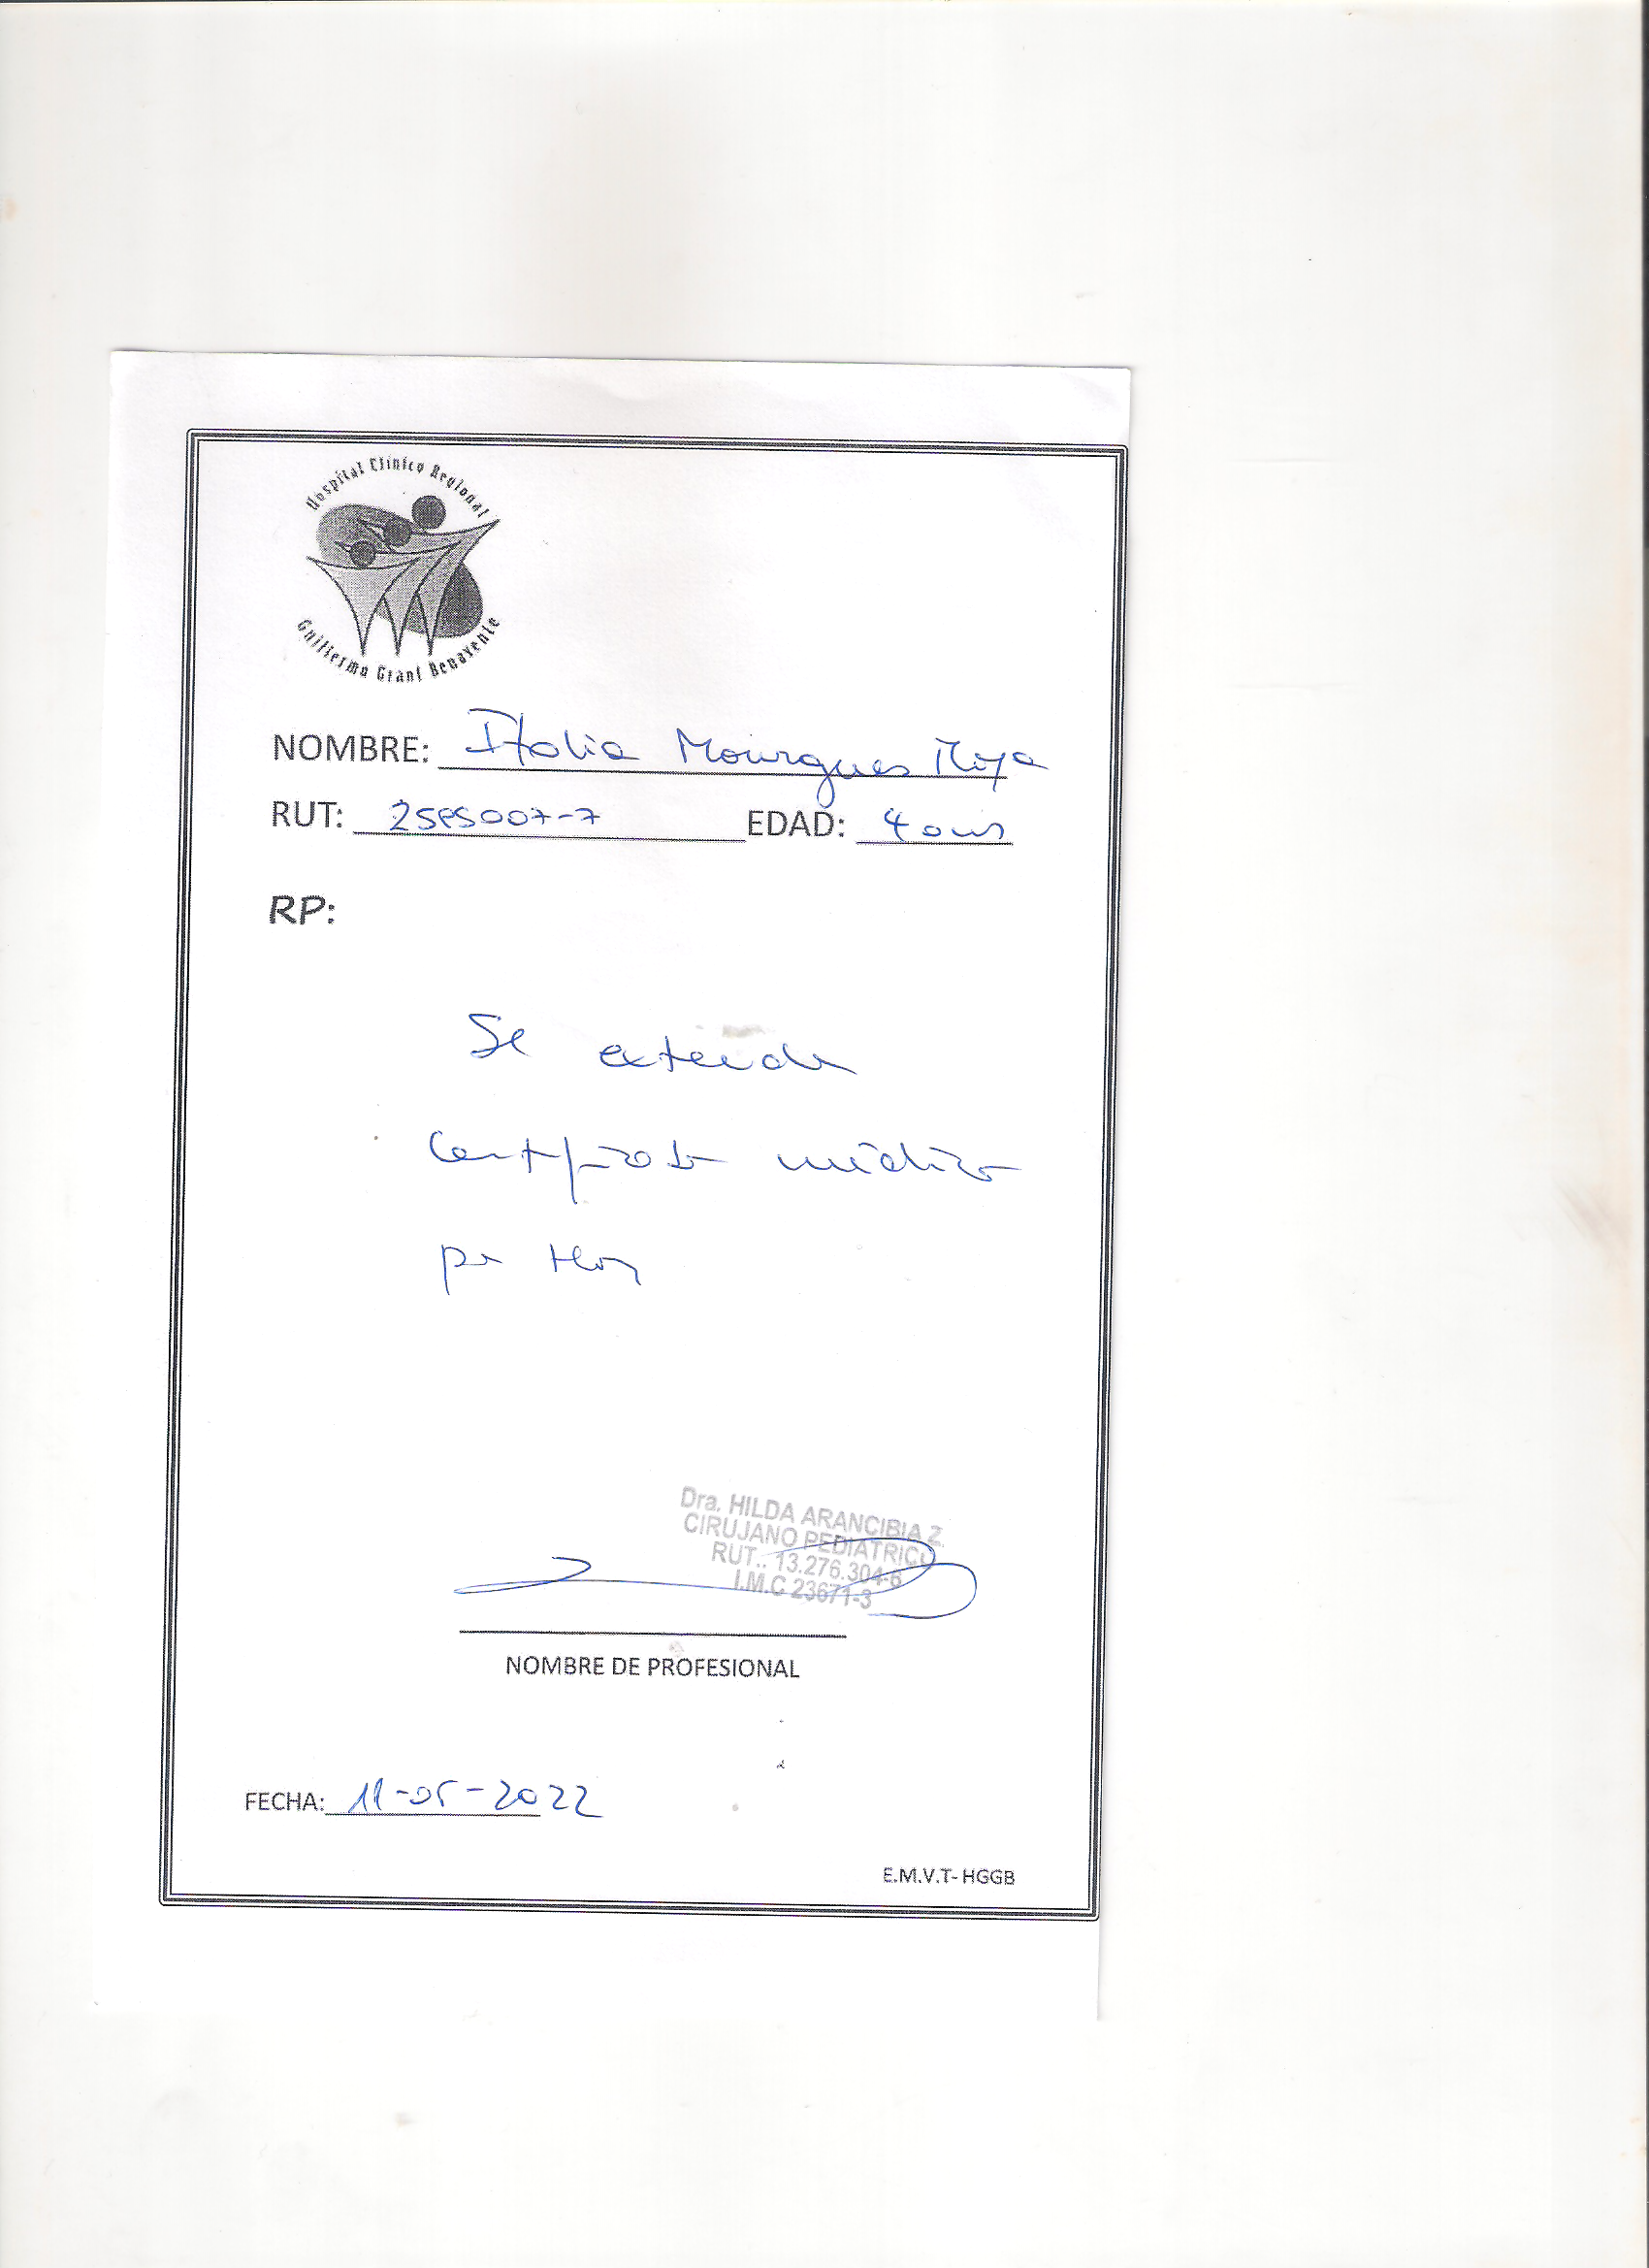 Hospital Clínico Regional
Guillermo Grant Benavente
NOMBRE: Italia Mourgues
RUT: EDAD: 4 años
RP:
Se extiende
Certificado médico
por hoy
Dra. HILDA ARANCIBIA Z.
CIRUJANO PEDIATRICO
RUT.: 13.276.304-6
I.M.C 23671-3
NOMBRE DE PROFESIONAL
FECHA: 11-05-2022
E.M.V.T- HGGB